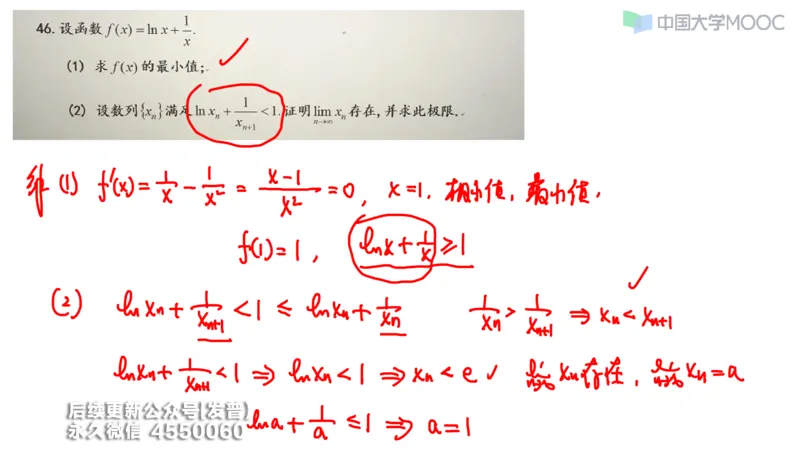 中国大学MOOC
46. 设函数 f(x) = ln x + 1/x.
(1) 求 f(x) 的最小值;
(2) 设数列{xₙ}满足 ln xₙ + 1/xₙ₊₁ < 1. 证明 lim n→∞ xₙ 存在, 并求此极限.
解 (1) f'(x) = 1/x - 1/x² = (x-1)/x² = 0, x=1. 极小值, 最小值.
f(1) = 1, ln x + 1/x ≥ 1
(2) ln xₙ + 1/xₙ₊₁ < 1 ≤ ln xₙ + 1/xₙ 1/xₙ > 1/xₙ₊₁ ⇒ xₙ < xₙ₊₁
ln xₙ + 1/xₙ₊₁ < 1 ⇒ ln xₙ < 1 ⇒ xₙ < e ✓ lim n→∞ xₙ 存在, lim n→∞ xₙ = a
ln a + 1/a ≤ 1 ⇒ a = 1
后续更新公众号[发普]
永久微信 4550060